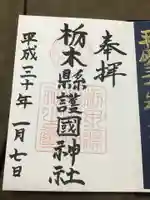 奉拝
栃木縣護國神社
平成三十年一月七日